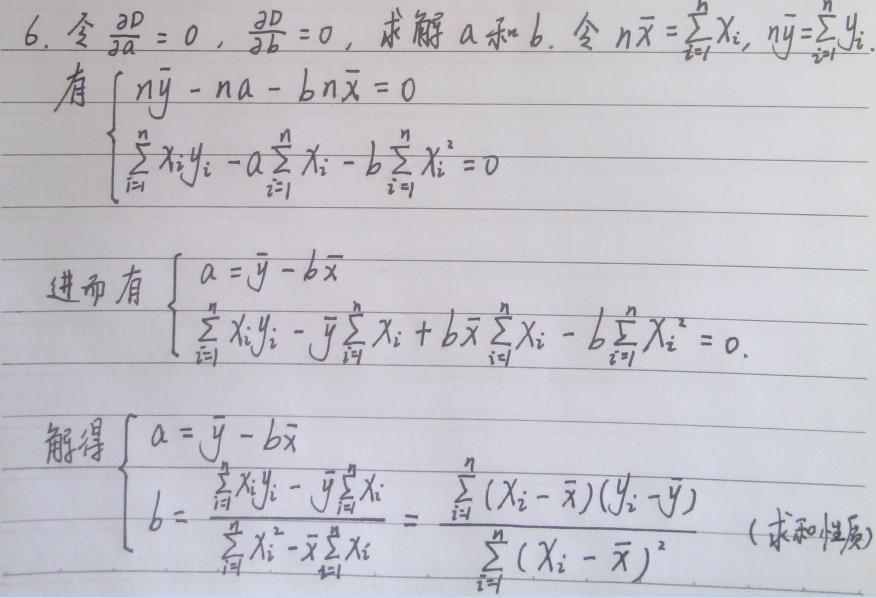 6. 令 ∂D/∂a = 0 , ∂D/∂b = 0 , 求解 a 和 b. 令 nx̄ = ∑_{i=1}^{n} x_i, nȳ = ∑_{i=1}^{n} y_i.
有 { nȳ - na - bnx̄ = 0
∑_{i=1}^{n} x_i y_i - a∑_{i=1}^{n} x_i - b∑_{i=1}^{n} x_i² = 0
进而有 { a = ȳ - bx̄
∑_{i=1}^{n} x_i y_i - ȳ∑_{i=1}^{n} x_i + bx̄∑_{i=1}^{n} x_i - b∑_{i=1}^{n} x_i² = 0.
解得 { a = ȳ - bx̄
b = (∑_{i=1}^{n} x_i y_i - ȳ∑_{i=1}^{n} x_i) / (∑_{i=1}^{n} x_i² - x̄∑_{i=1}^{n} x_i) = (∑_{i=1}^{n} (x_i - x̄)(y_i - ȳ)) / (∑_{i=1}^{n} (x_i - x̄)²) (求和性质)